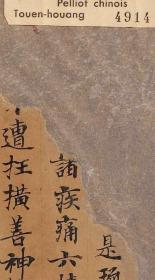 Pelliot chinois
Touen-houang 4914
是
諸疾痛六
遭抂撗善神